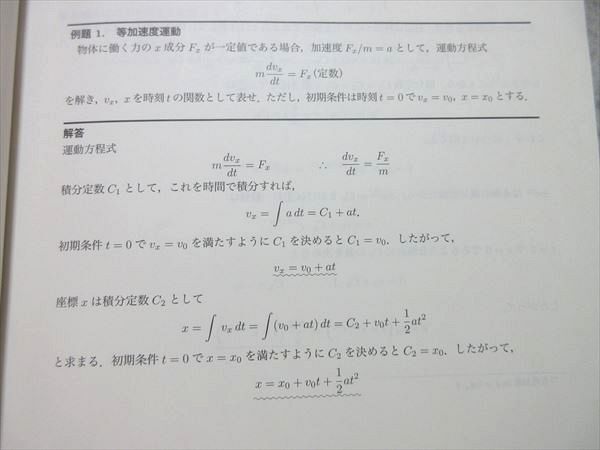 例題 1. 等加速度運動
物体に働く力の x 成分 Fₓ が一定値である場合，加速度 Fₓ/m = a として，運動方程式
m dvₓ/dt = Fₓ (定数)
を解き，vₓ，x を時刻 t の関数として表せ．ただし，初期条件は時刻 t = 0 で vₓ = v₀, x = x₀ とする．
解答
運動方程式
m dvₓ/dt = Fₓ ∴ dvₓ/dt = Fₓ/m
積分定数 C₁ として，これを時間で積分すれば，
vₓ = ∫ a dt = C₁ + at.
初期条件 t = 0 で vₓ = v₀ を満たすように C₁ を決めると C₁ = v₀．したがって，
vₓ = v₀ + at
座標 x は積分定数 C₂ として
x = ∫ vₓ dt = ∫(v₀ + at) dt = C₂ + v₀t + 1/2 at²
と求まる．初期条件 t = 0 で x = x₀ を満たすように C₂ を決めると C₂ = x₀．したがって，
x = x₀ + v₀t + 1/2 at²